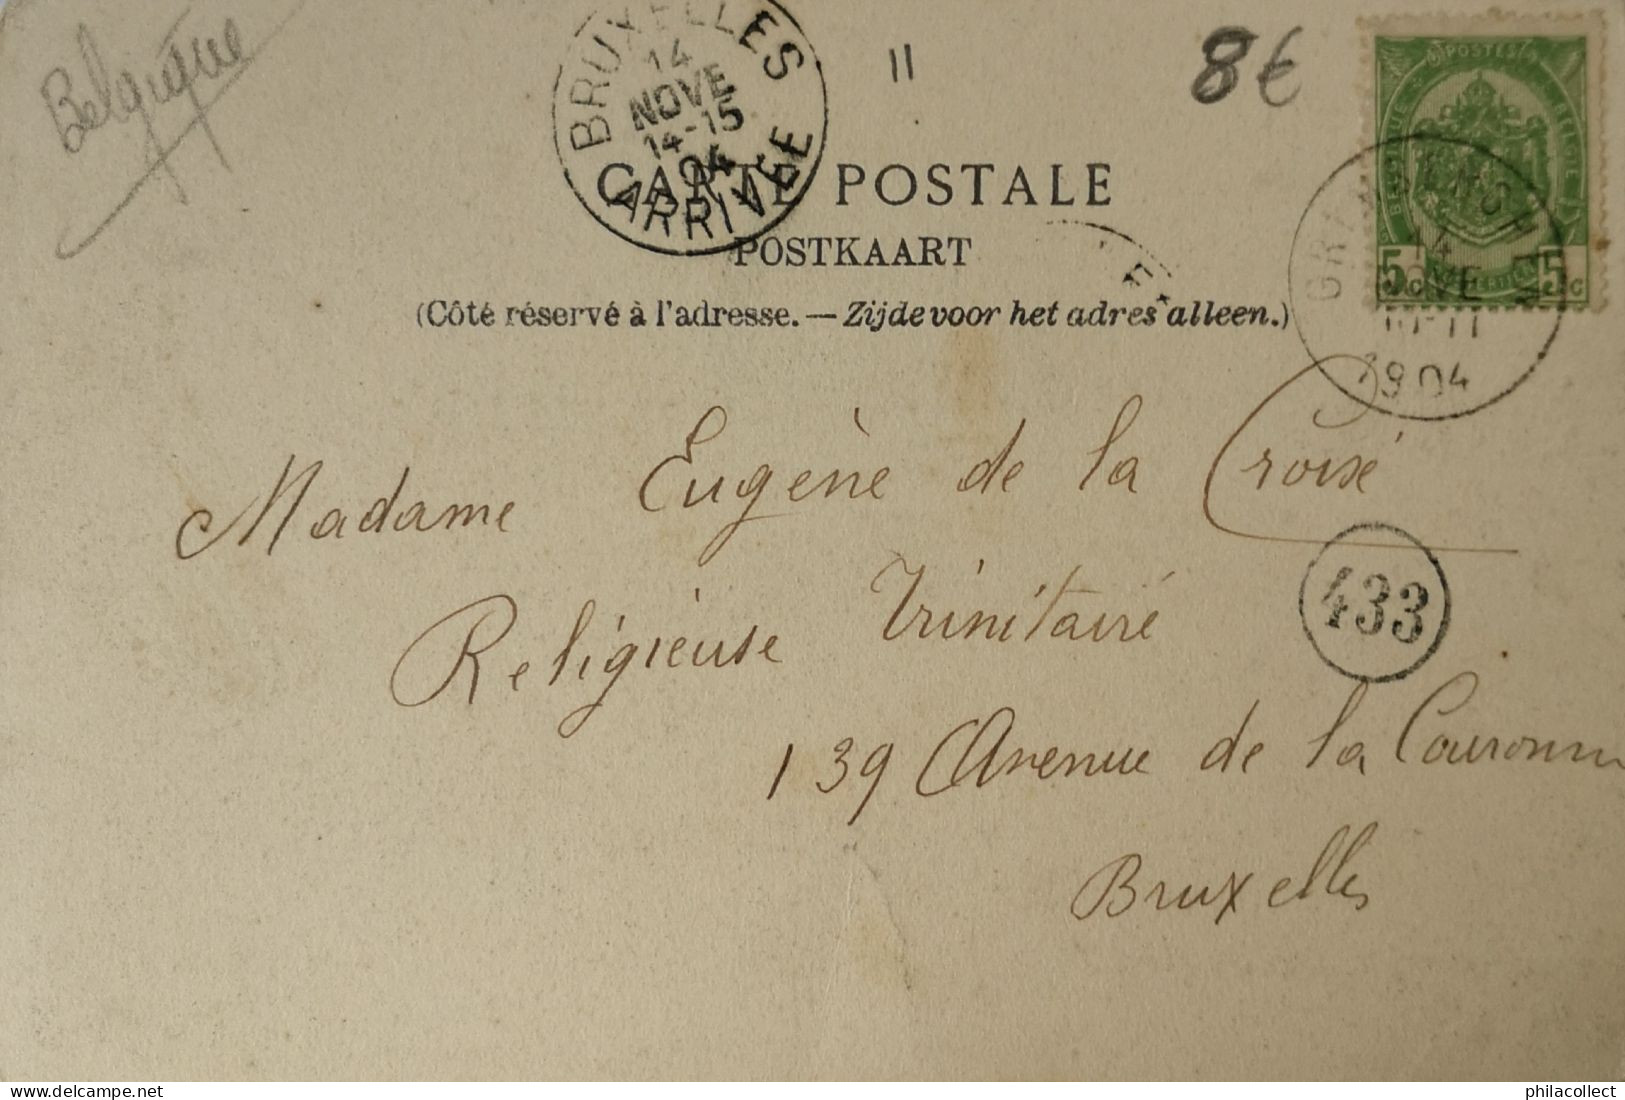 Belgique
BRUXELLES
14
NOVE
14-15
04
ARRIVEE
11
8€
POSTES
BELGIQUE
BELGIE
5c
5c
CARTE POSTALE
POSTKAART
14
NOVE
10-11
1904
(Côté réservé à l'adresse. — Zijde voor het adres alleen.)
Madame Eugène de la Croisé
Religieuse Trinitaire
433
139 Avenue de la Couronne
Bruxelles
philacollect